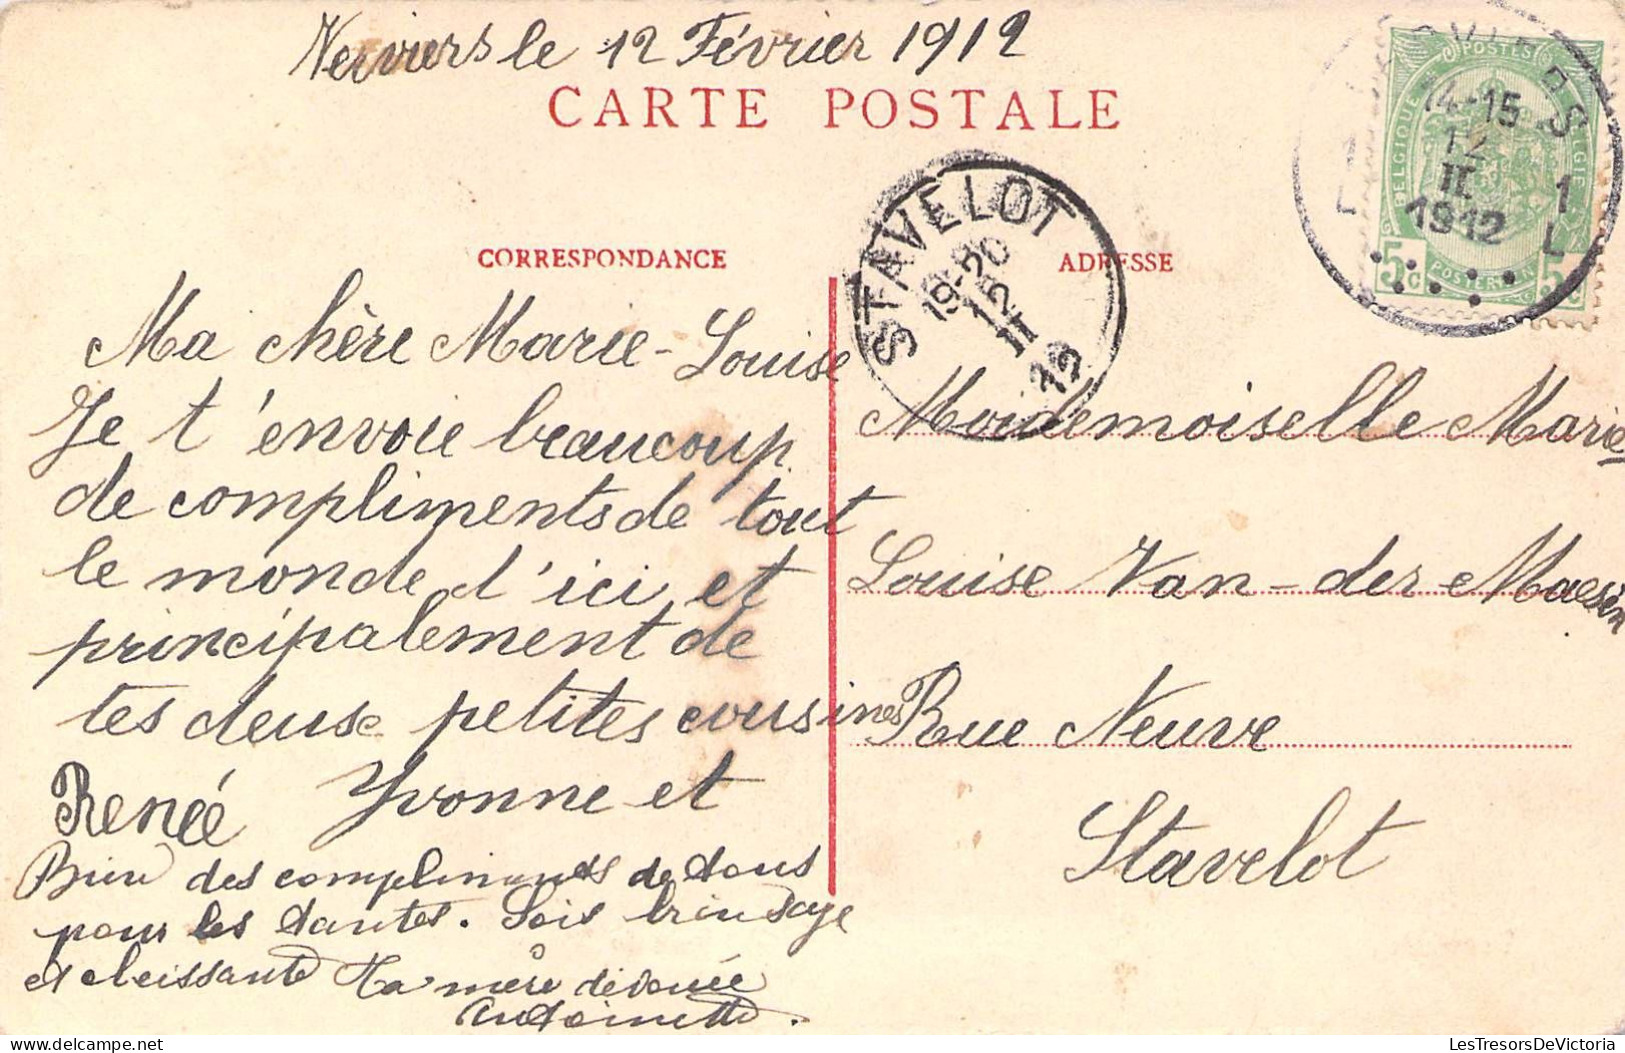 Verviers le 12 Février 1912
CARTE POSTALE
CORRESPONDANCE
Ma chère Marie-Louise
Je t'envoie beaucoup
de compliments de tout
le monde d'ici et
principalement de
tes deuse petites cousines
Renée Yvonne et
Bien des compliments de tous
pour les tantes. Sois bien sage
et obeissante Ta mère dévouée
Antoinette.
ADRESSE
Mademoiselle Marie
Louise Van-der Maesèn
Rue Neuve
Stavelot
STAVELOT
19-20
12
II
12
POSTES
BELGIQUE
BELGIË
POSTERIJEN
5c 5c
14-15
12
II
1912
1L
delcampe.net
LesTresorsDeVictoria